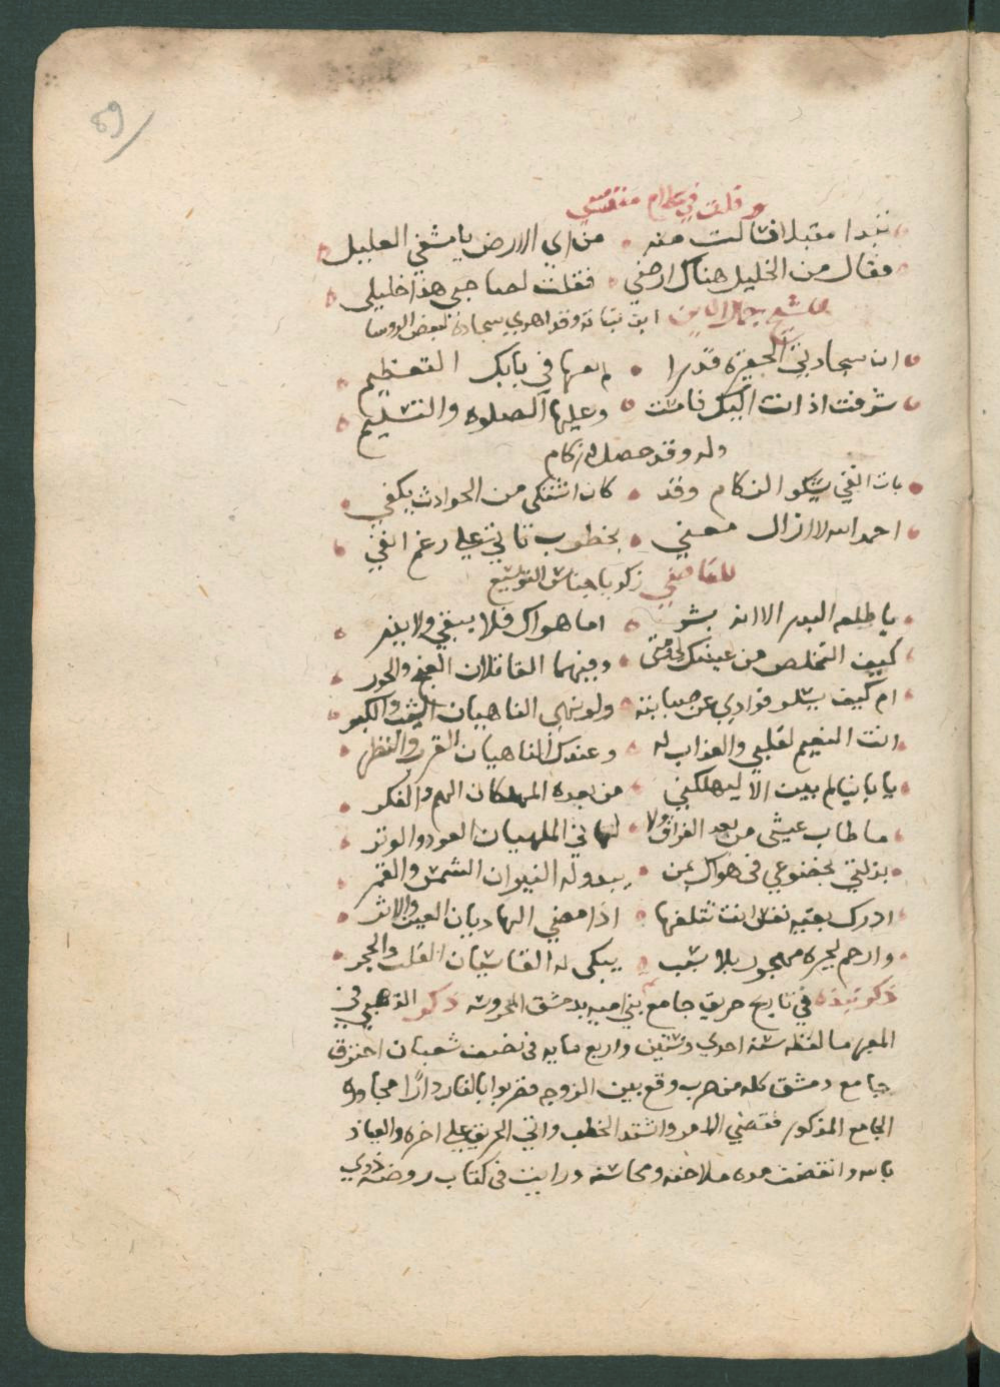 89
وقلت في مقتبس
تبدا مقبلا فقالت منه • من اي الارض يا مشفي العليل
فقال من الخليل هناك ارضي • فقلت لصاحبي هذا خليلي
للشيخ جمال الدين ابن نباته وقد اهدي سجادة لبعض الروسا
ان سجادتي الحقيرة قدرا • لم يعها في بابك التعظيم
شرفت اذ اتت اليك فامست • وعليها الصلوه والتسليم
وله وقد حصل له زكام
بات انفي يشكو الزكام وقد • كان اشتكى من الحوادث يكفي
احمد الله لا ازال معني • بخطوب تاتي علي رغم انفي
للقاضي زكريا جناس التوشيع
يا طلعه البدر الا انه بشر • اما هواك فلا يبقي ولا يذر
كيف التخلص من عينيك لي ومتى • وفيهما القاتلان الغنج والحور
ام كيف يسلو فوادي عن صبابته • ولو نهي الناهيان الشيب والكبر
انت النعيم لقلبي والعذاب له • وعندك الناهيان القرر والنظر
يا بانيا لم يبين الا ليهلكني • من بعده المهلكان الهم والفكر
ما طاب عيشي من بعد الفراق ولا • لهاني الملهيان العود والوتر
بذلتي بخضوعي في هواك بمن • يبدو له النيران الشمس والقمر
ادرك بقيه نفس انت تتلفها • اذا مضي الهاديان العين والاثر
وارحم لحيره مهجور بلا سبب • يبكي له القاسيان القلب والحجر
ذكر نبذه في تاريخ حريق جامع بني اميه بدمشق المحروسه ذكر الذهبي في
العبر ما لفظه سنه احدي وستين واربع مايه في نصف شعبان احترق
جامع دمشق كله من حرب وقع بين الزوجه فضربوا بالنار دارًا مجاوره
الجامع المذكور فقضي الامر واشتد الخطب واتي الحريق علي اخره والعياذ
بالله وانقضت مده ملاحته ومحاسنه ورايت في كتاب روضه ذوي